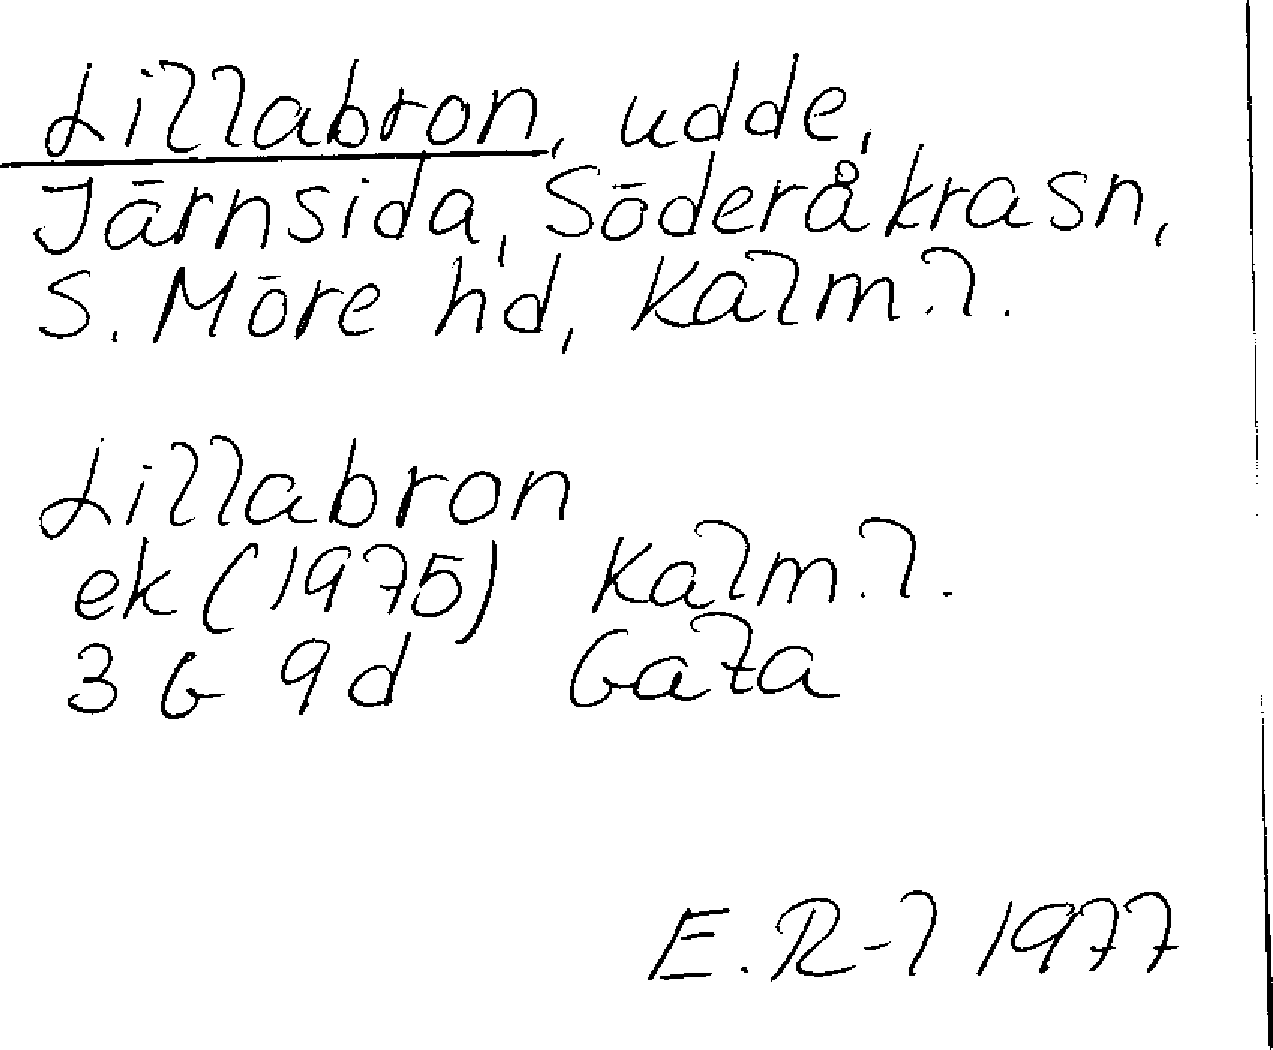 Lillabron, udde,
Järnsida, Söderåkrasn,
S. Möre hd, Kalm. l.
Lillabron
ek (1975) Kalm. l.
3 G 9 d Gata
E. R-l 1977